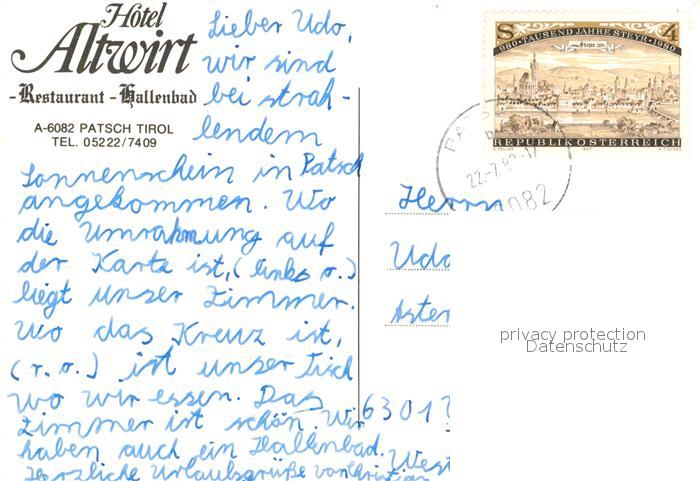 Hôtel
Altwirt
-Restaurant - Hallenbad
A-6082 PATSCH TIROL
TEL. 05222/7409
Lieber Udo,
wir sind
bei strah-
lendem
Sonnenschein in Patsch
angekommen. Wo
die Umrahmung auf
der Karte ist, (links o.)
liegt unser Zimmer.
Wo das Kreuz ist,
(r. o.) ist unser Tisch
wo wir essen. Das
Zimmer ist schön. Wir
haben auch ein Hallenbad.
Herzliche Urlaubsgrüße von Christian
S 4
980 · TAUSEND JAHRE STEYR · 1980
Steyr
REPUBLIK ÖSTERREICH
22.-7.8
6082
Herrn
Udo
Aster
6301
West
privacy protection
Datenschutz